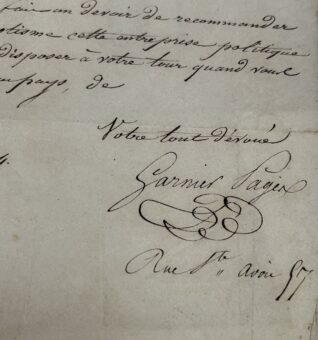 fais un devoir de recommander
otisme cette entreprise politique
disposer à votre tour quand vous
pays, de
Votre tout dévoué
Garnier Pagès
Rue Ste avoie 57